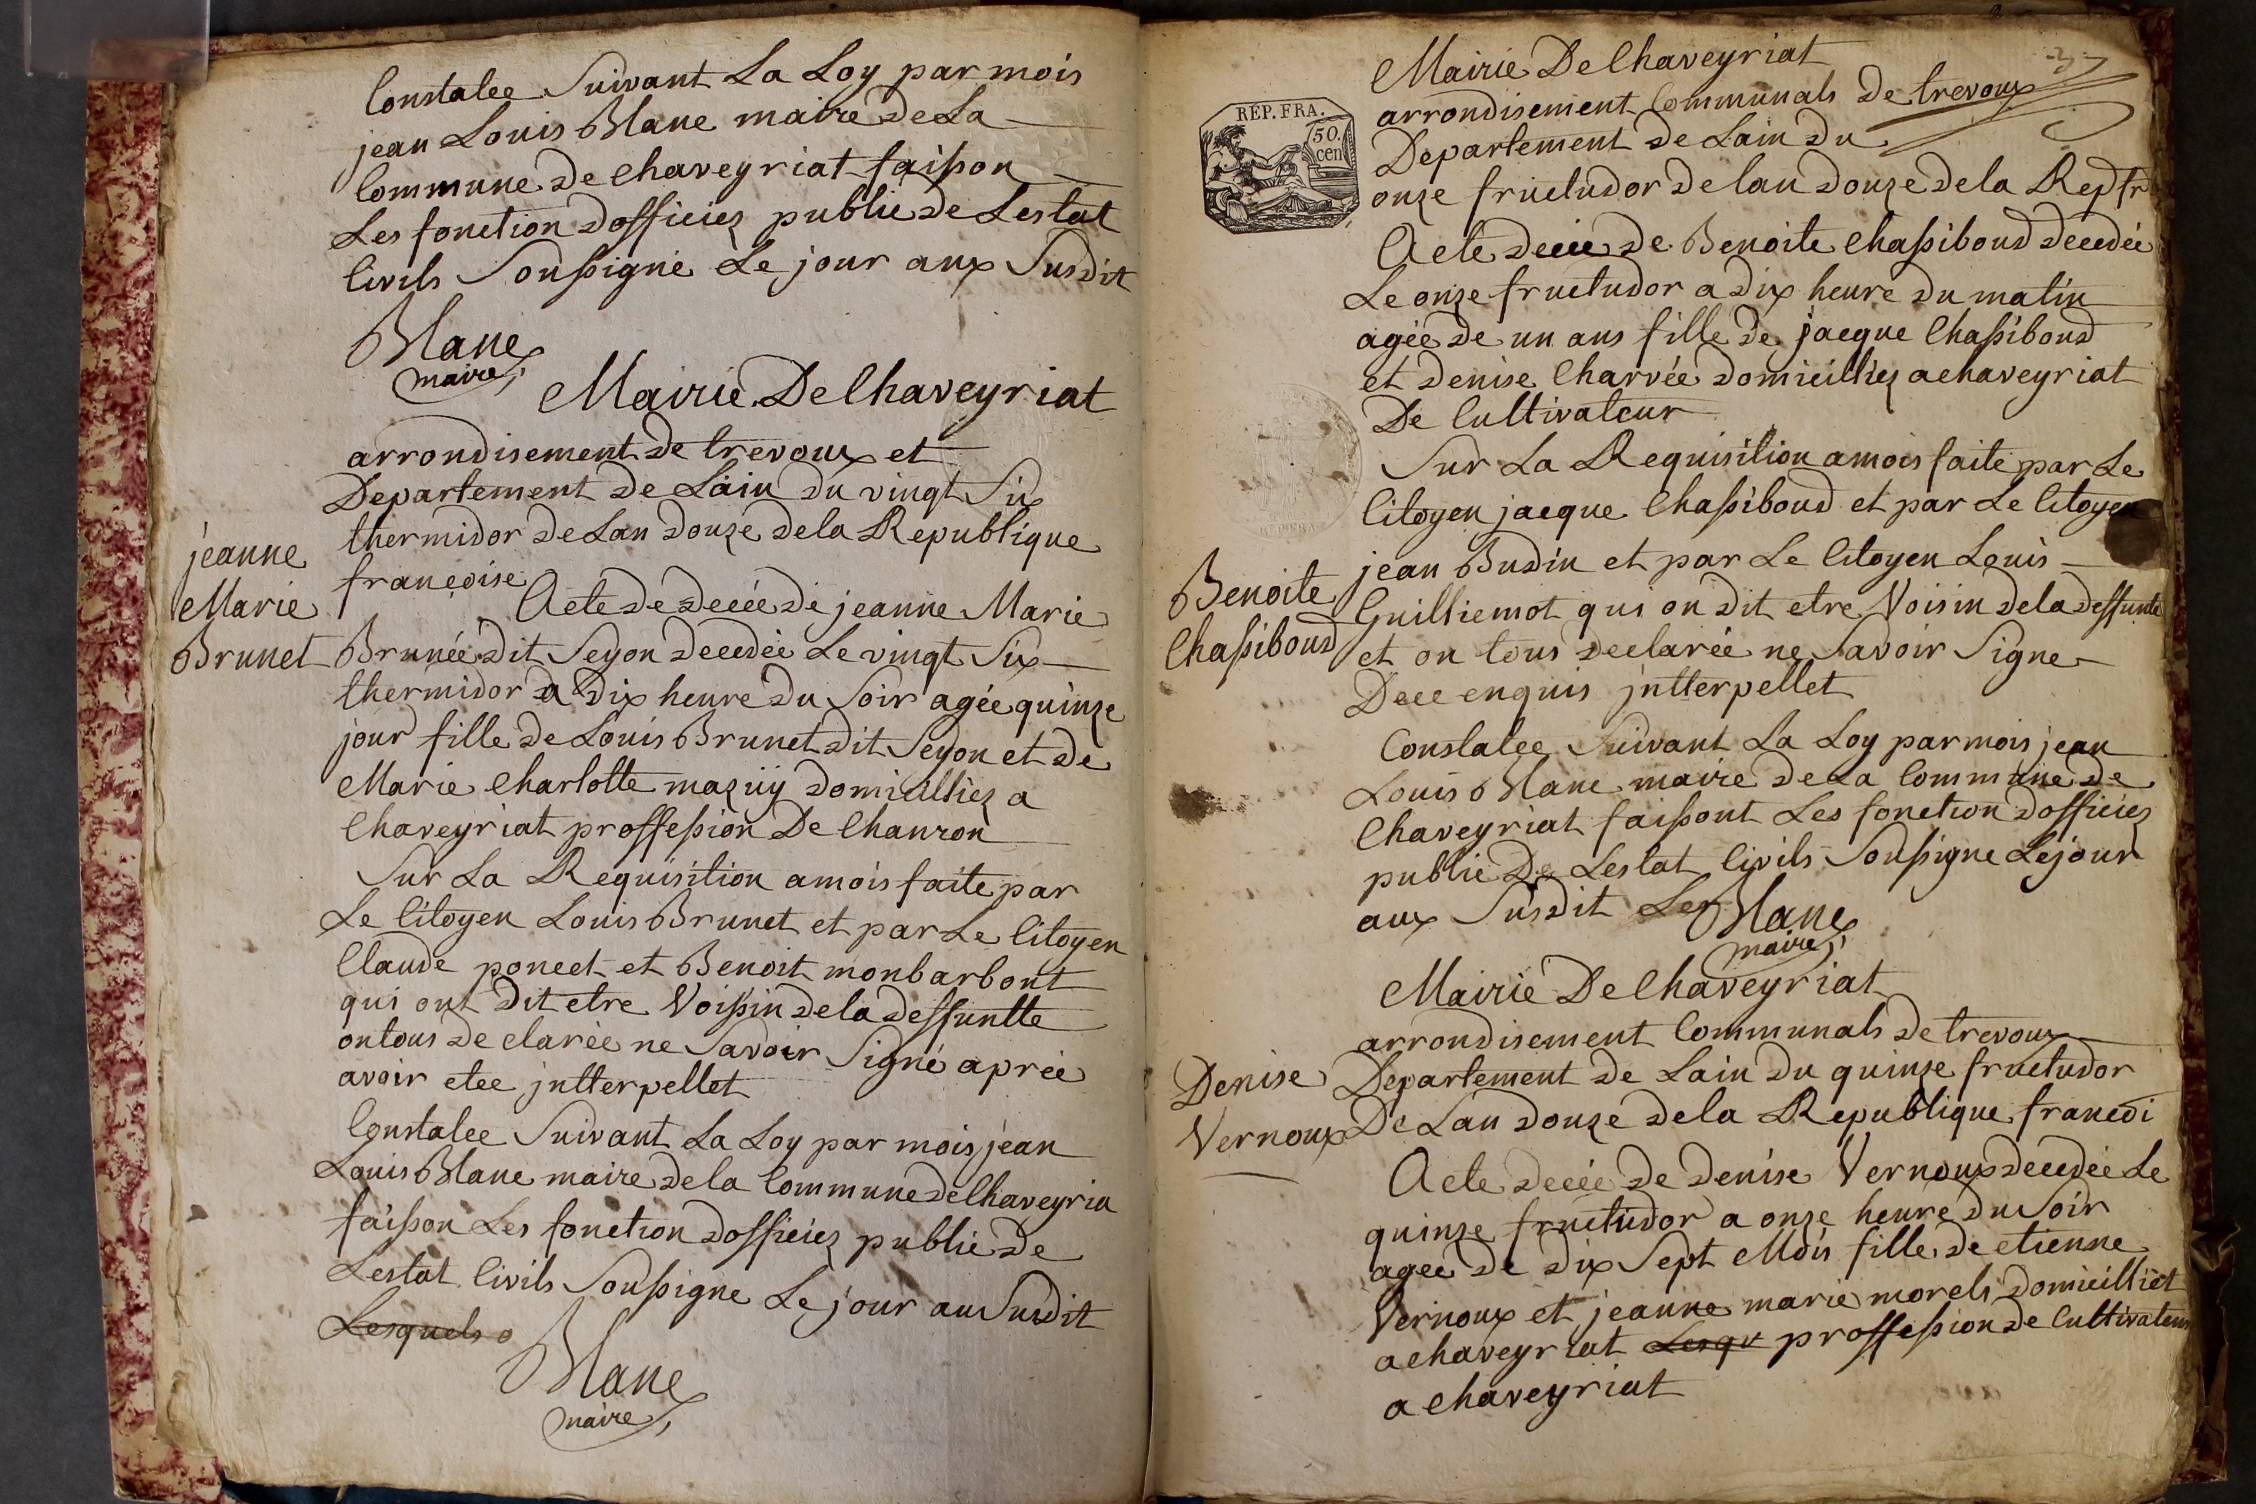 Constalee Suivant La Loy par mois
jean Louis Blanc maire De La
Commune De Chaveyriat faisson
Les fonction dofficiez public de Lestat
Civils Soussigné Le jour aux Susdit
Blanc
maire
Mairie De Chaveyriat
arrondisement de trevoux et
Departement de Lain du vingt Six
thermidor de Lan douze dela Republique
françoise
jeanne
Marie
Brunet
Acte De Decée De jeanne Marie
Brunée dit Seyon Decedée Le vingt Six
thermidor a dix heure du Soir agée quinze
jour fille de Louis Brunet dit Seyon et de
Marie Charlotte mazuy domicilliez a
Chaveyriat proffession De Chanron
Sur La Requisition a mois faite par
Le Citoyen Louis Brunet et par Le Citoyen
Claude poncet et Benoit monbarbont
qui ont Dit etre Voissin de la deffuntte
on tous de clarée ne Savoir Signé aprée
avoir etee jntterpellet
Constalee Suivant La Loy par mois jean
Louis Blanc maire dela Commune de Chaveyria
faisson Les fonction dofficiez public de
Lestat Civils Soussigne Le jour au Susdit
Lesquels
Blanc
maire
Mairie De Chaveyriat
arrondisement Communals de trevoux
Departement de Lain du
onze fructudor de lan douze dela Rep fr
REP. FRA.
50.
cen
Acte decée de Benoite Chassiboud decedée
Le onze fructudor a dix heure du matin
agée de un ans fille de jacque Chassiboud
et denise Charvée domicilliez a chaveyriat
De Cultivateur
Sur La Requisition a mois faite par Le
Citoyen jacque Chassiboud et par Le Citoyen
jean Budin et par Le Citoyen Louis
Benoite
Chassiboud
Guilliemot qui on dit etre Voisin de la deffunte
et on tous declarée ne Savoir Signe
Dece enquis jntterpellet
Constalee Suivant La Loy par mois jean
Louis Blanc maire de La Commune de
Chaveyriat faissont Les fonction dofficiez
public De Lestat Civils Soussigne Le jour
aux Susdit Les
Blanc
maire
Mairie De Chaveyriat
arrondisement Communals de trevoux
Denise
Vernoux
Departement de Lain du quinze fructudor
De Lan douze dela Republique francoi
Acte decée de denise Vernoux decedée Le
quinze fructudor a onze heure du Soir
agee de dix Sept Mois fille de etienne
Vernoux et jeanne marie morels domicilliet
a chaveyriat Lesqu proffession de Cultivateur
a chaveyriat